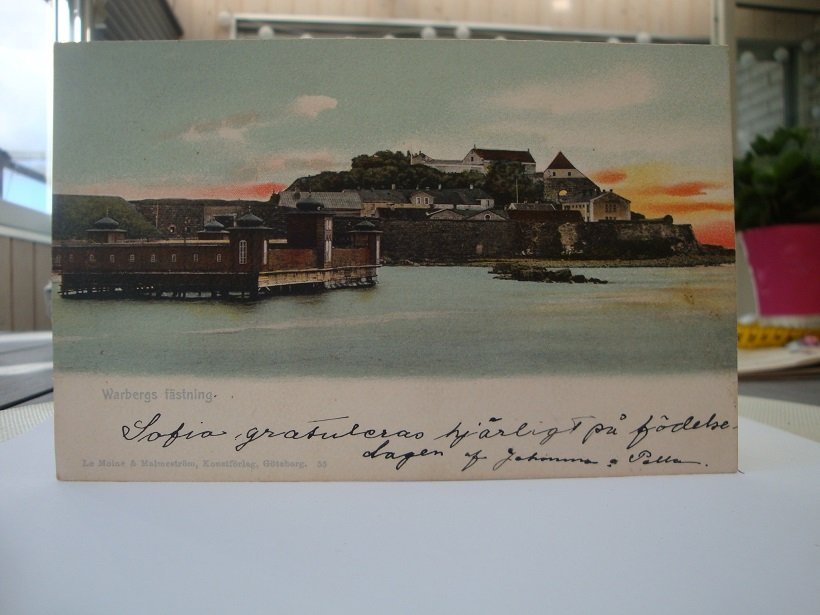 Warbergs fästning.
Sofia gratuleras hjärligt på födelse-
dagen af Johanna &
Le Moine & Malmeström, Konstförlag, Göteborg. 55